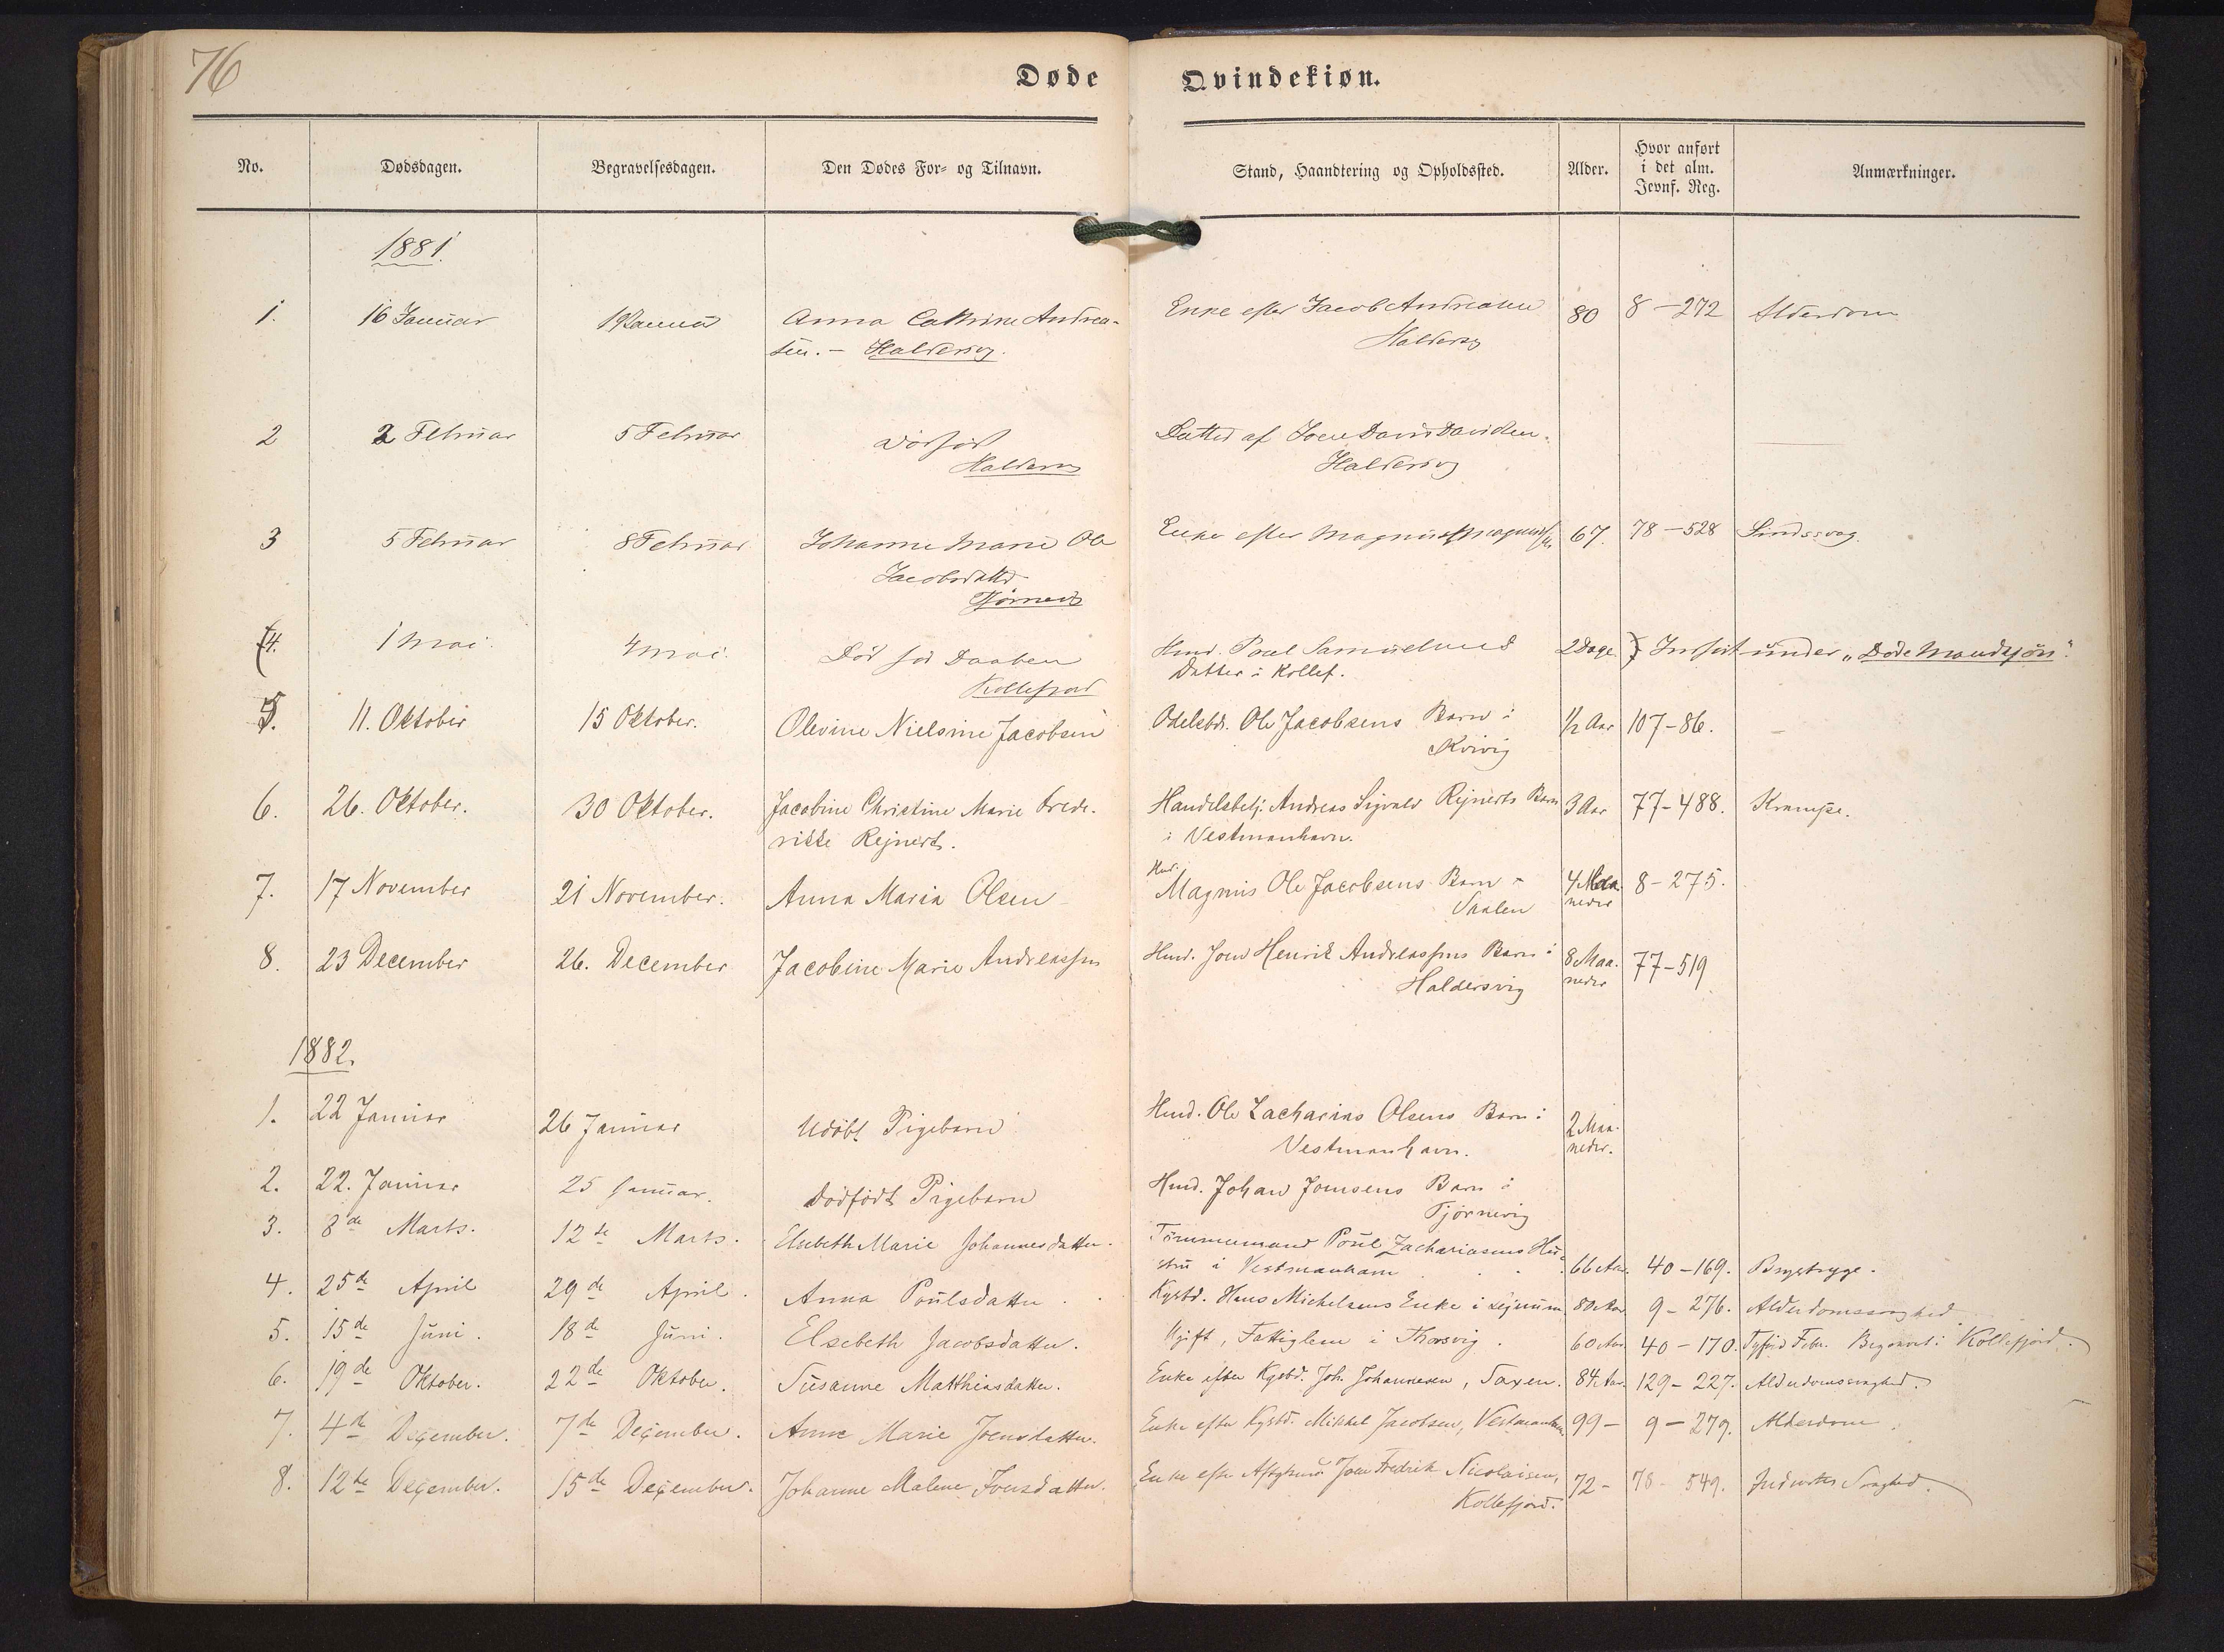 76
Døde Qvindekiøn.
No. Dødsdagen. Begravelsesdagen. Den Dødes For- og Tilnavn. Stand, Haandtering og Opholdssted. Alder. Hvor anført i det alm. Jevnf. Reg. Anmærkninger.
1881.
1. 16 Januar 19 Januar Anna Cathrine Andrea- Enke efter Jacob Andreasen 80 8-272 Alderdom
sen. - Haldersvig. Haldersvig
2 2 Februar 5 Februar Dødfød Datter af Joen David Davidsen.
Haldersvig Haldersvig
3 5 Februar 8 Februar Johanne Marie Ole Enke efter Magnus Magnussen 67. 78-528 Sindssvag.
Jacobsdatter
Tjørnevig
4. 1 Mai 4 Mai. Død før Daaben Hmd. Poul Samuelsens 2 Dage. Indført under "Døde Mandkjøn".
Kollefjord Datter i Kollef.
5. 11. Oktober 15 Oktober. Olevine Nielsine Jacobsen Odelsbd. Ole Jacobsens Barn i 1/2 Aar 107-86. -
Kvivig
6. 26. Oktober. 30 Oktober. Jacobine Christine Marie Frede- Handelsbetj. Andreas Sigvald Rejnerts Barn 3 Aar 77-488. Krampe.
rikke Rejnert. i Vestmanhavn.
7. 17 November 21 November. Anna Maria Olsen Hmd. Magnus Ole Jacobsens Barn i 4 Maa- 8-275.
Saalen neder
8. 23 December 26. December Jacobine Marie Andreassen Hmd. Joen Henrik Andreassens Barn i 8 Maa- 77-519
Haldersvig neder
1882.
1. 22 Januar 26 Januar Udøbt Pigebarn Hmd. Ole Zacharias Olsens Barn i 2 Maa-
Vestmanhavn. neder.
2. 22. Januar 25 Januar. Dødfødt Pigebarn Hmd. Johan Joensens Barn i
Tjørnevig
3. 8de Marts. 12te Marts. Elsebeth Marie Johannesdatter. Tømmermand Poul Zachariasens Hu-
stru i Vestmanhavn 66 Aar. 40-169. Brystsyge.
4. 25de April 29de April. Anna Poulsdatter Kgsbd. Hans Michelsens Enke i Lejnum 80 Aar 9-276. Alderdomssvaghed
5. 15de Juni. 18de Juni. Elsebeth Jacobsdatter. Ugift, Fattiglem i Thorsvig. 60 Aar 40-170. Tyfoid Feber. Begravet i Kollefjord.
6. 19de Oktober. 22de Oktober. Susanne Matthiasdatter. Enke efter Kgsbd. Joh. Johannesen, Saxen. 84 Aar. 129-227. Alderdomssvaghed.
7. 4de December. 7de December. Anne Marie Joensdatter. Enke efter Kgsbd. Mikkel Jacobsen, Vestmanhavn 99- 9-279. Alderdom
8. 12te December. 15de December. Johanne Malene Joensdatter. Enke efter Joen Fredrik Nicolaisen, 72- 78-549. Indvortes Svaghed.
Kollefjord.